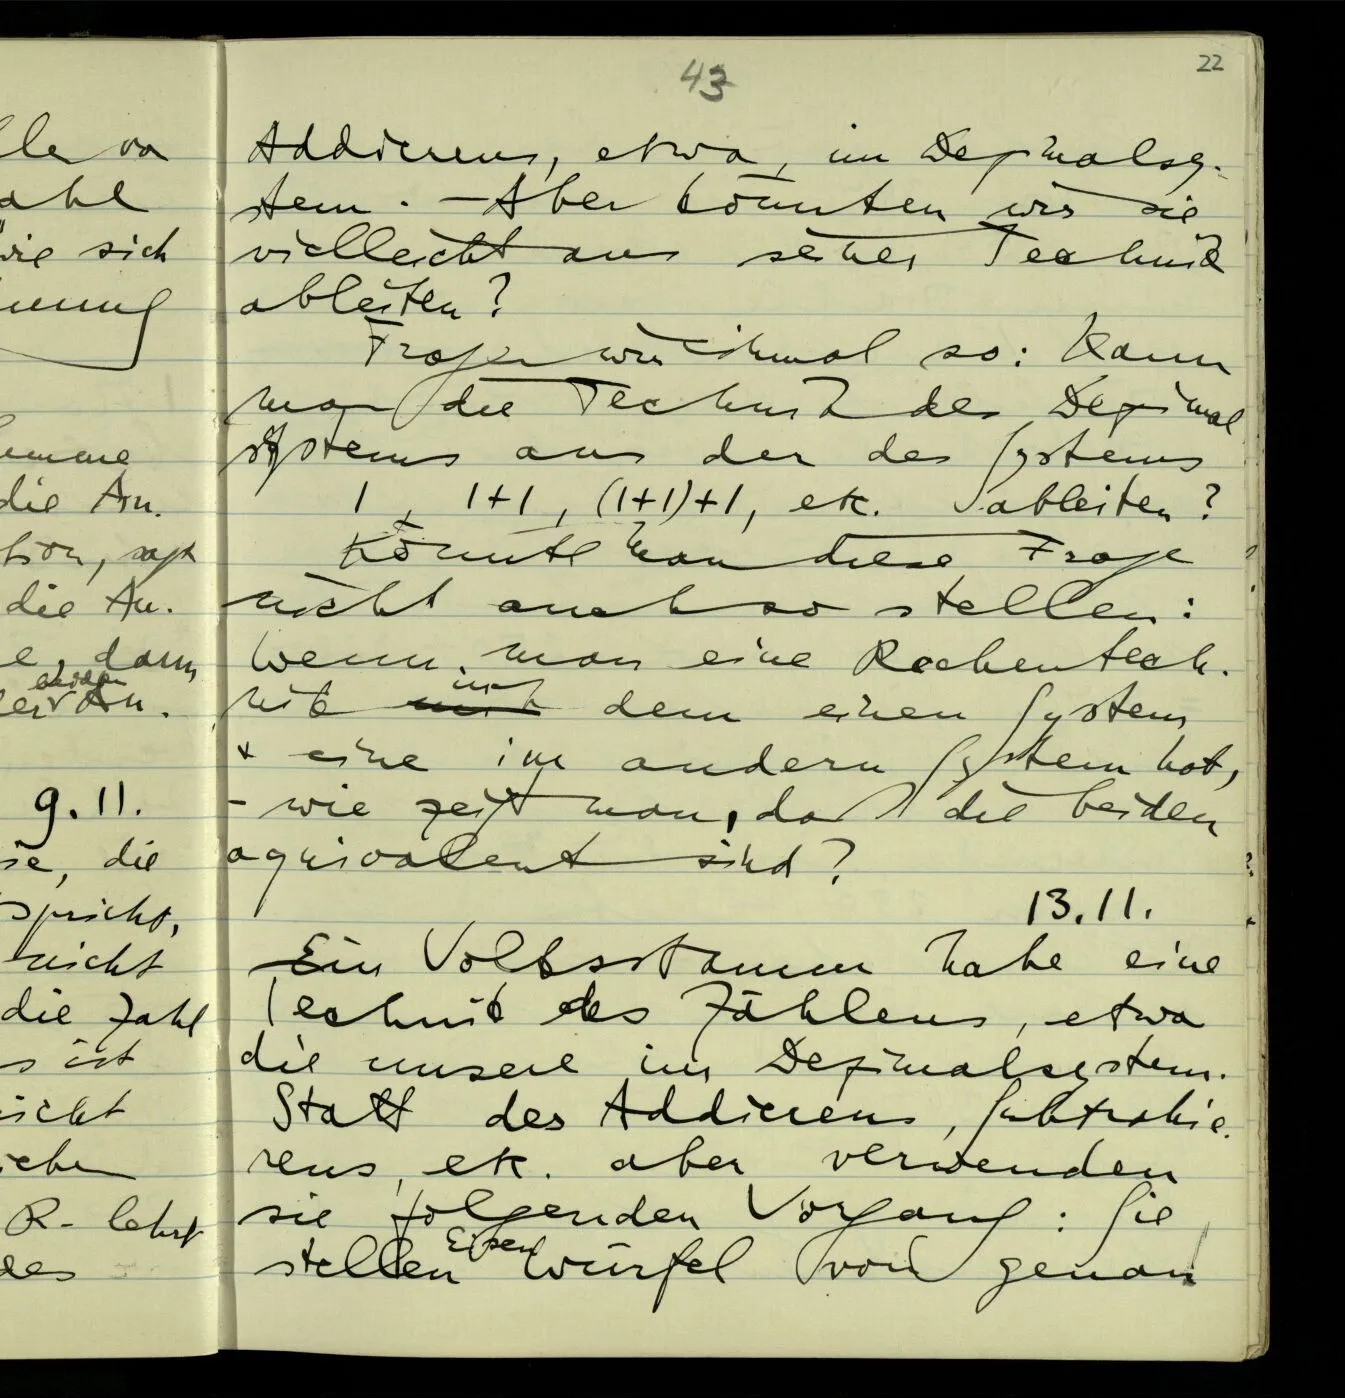 43
22
Addierens, etwa, im Dezimalsy-
stem. – Aber könnten wir sie
vielleicht aus seiner Technik
ableiten?
Frage wir einmal so: Kann
man die Technik des Dezimal
systems aus der des Systems
1, 1+1, (1+1)+1, etc. ableiten?
Könnte man diese Frage
nicht auch so stellen:
Wenn man eine Rechentech-
nik in dem einen System
+ eine im andern System hat,
– wie zeigt man, daß die beiden
äquivalent sind?
13.11.
Ein Volksstamm habe eine
Technik des Zählens, etwa
die unsere im Dezimalsystem.
Statt des Addierens, Subtrahie-
rens, etc. aber verwenden
sie folgenden Vorgang: Sie
stellen Eisenwürfel von genau
wie sich
die An-
die An-
e, dann
beiden
9.11.
sie, die
spricht,
nicht
die Zahl
s ist
R- lehrt
des